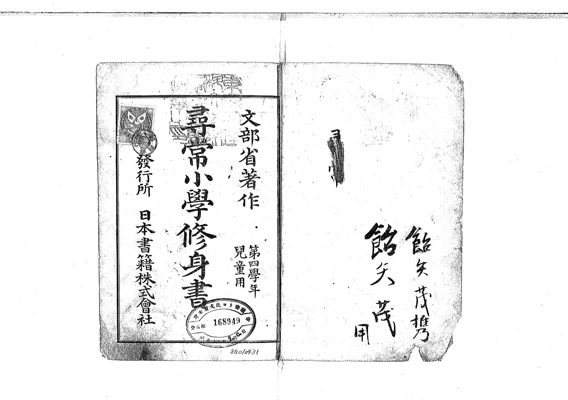 飴矢茂
飴矢茂
用
文部省著作
第四學年
兒童用
尋常小學修身書
發行所 日本書籍株式會社
168949